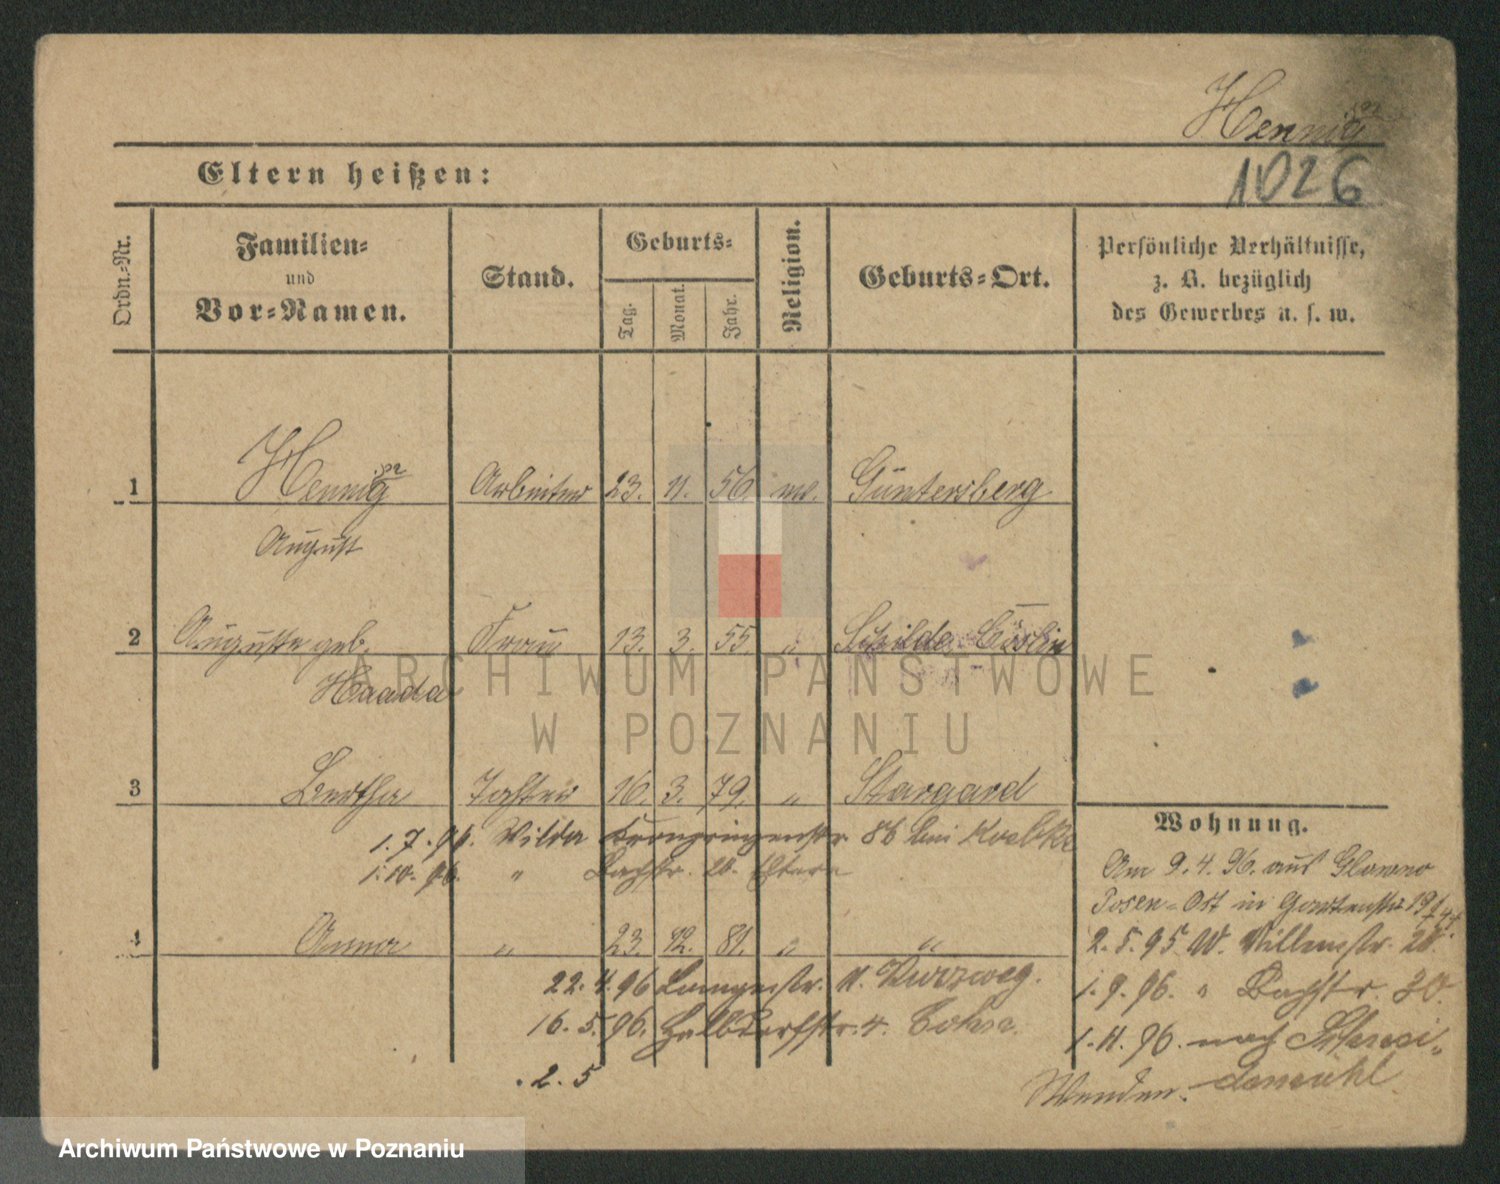 Hennig
1026
Eltern heißen:
Ordn.-Nr.
Familien-
und
Vor-Namen.
Stand.
Geburts-
Tag.
Monat.
Jahr.
Religion.
Geburts-Ort.
Persönliche Verhältnisse,
z. B. bezüglich
des Gewerbes u. s. w.
1 Hennig Arbeiter 23. 11. 56. Güntersberg
August
2 Auguste geb. Frau 13. 3. 55. „ Cöslin
Haada
3 Bertha Tochter 16. 3. 79. „ Stargard
1.7.96. Wilda Kronprinzenstr. 86 bei
1.10.96. „ Bachstr. 20. Eltern
4 Anna „ 23. 12. 81. „ „
22.4.96 Langestr. 11. Kurzweg.
16.5.96. Halbdorfstr. 4. Cohn.
.2.5
Wohnung.
Am 9.4.96. aus Glowno
Posen-Ost in Gartenstr. 19
2.5.95. W. 20.
1.9.96. „ Bachstr. 20.
1.11.96. nach Schnei-
demühl
Wenden.
ARCHIWUM PAŃSTWOWE
W POZNANIU
Archiwum Państwowe w Poznaniu